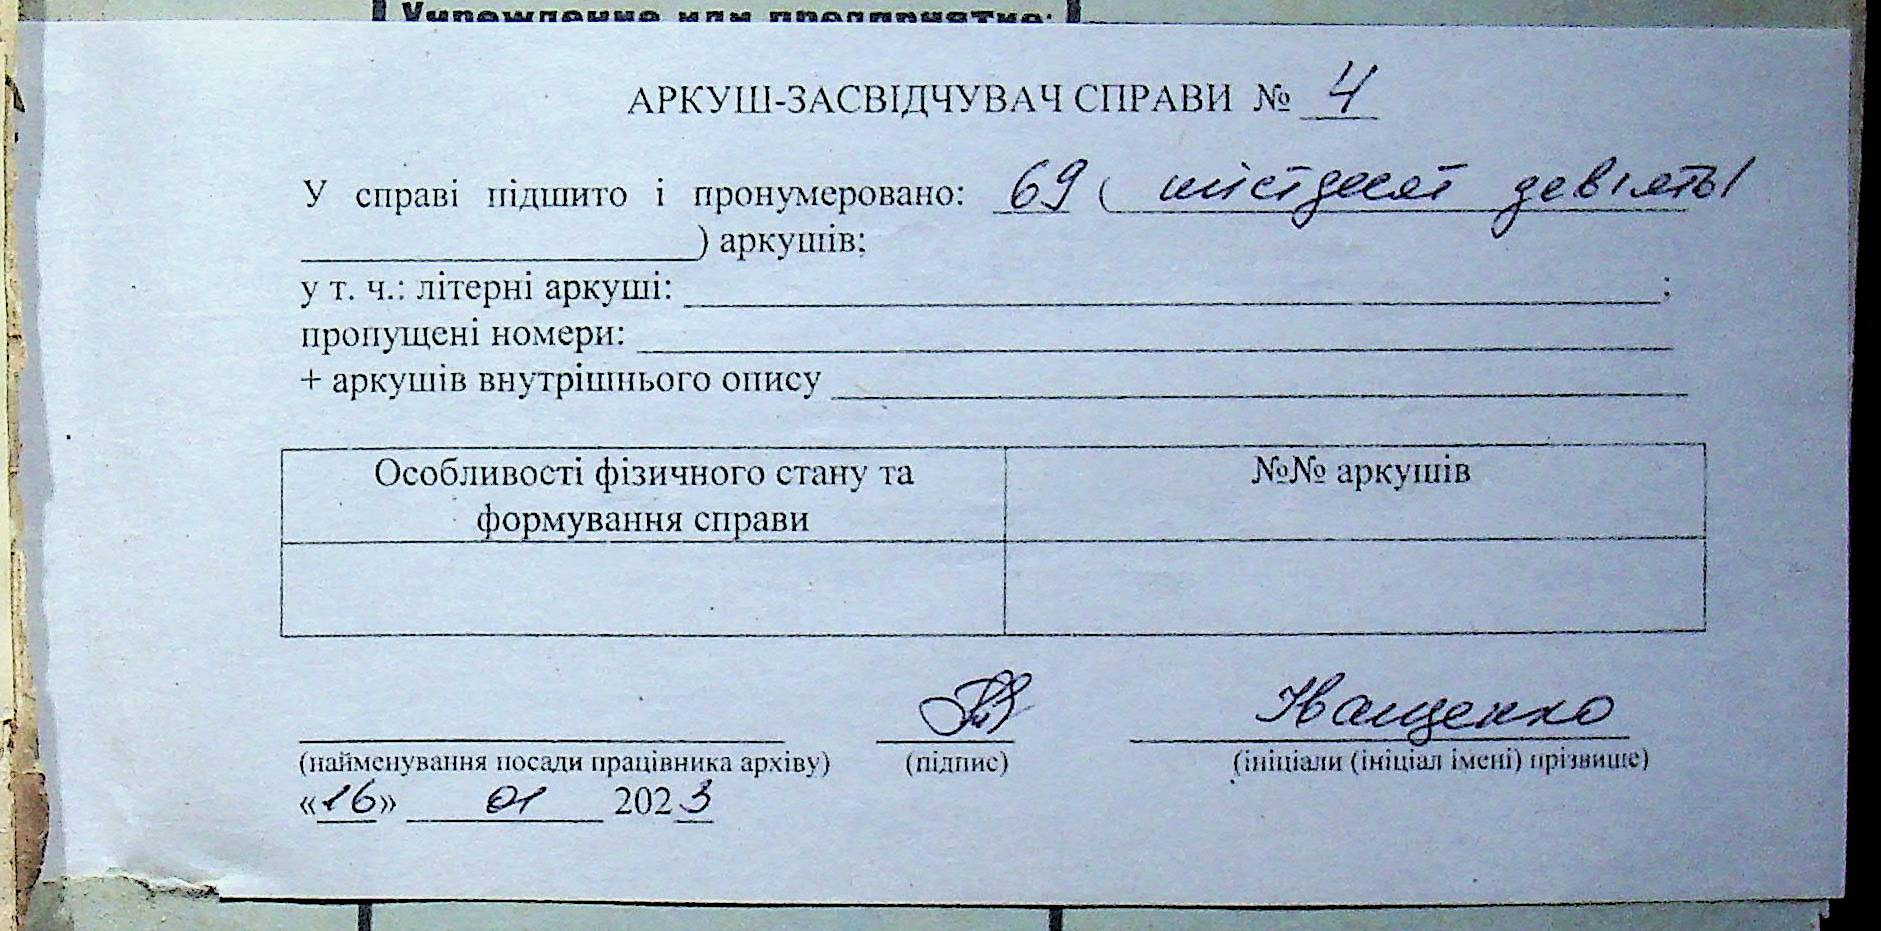 Учреждение или предприятие:
АРКУШ-ЗАСВІДЧУВАЧ СПРАВИ № 4
У справі підшито і пронумеровано: 69 ( шістдесят девіять
) аркушів;
у т. ч.: літерні аркуші: ;
пропущені номери:
+ аркушів внутрішнього опису
Особливості фізичного стану та
формування справи
№№ аркушів
Іващенко
(найменування посади працівника архіву) (підпис) (ініціали (ініціал імені) прізвище)
«16» 01 2023